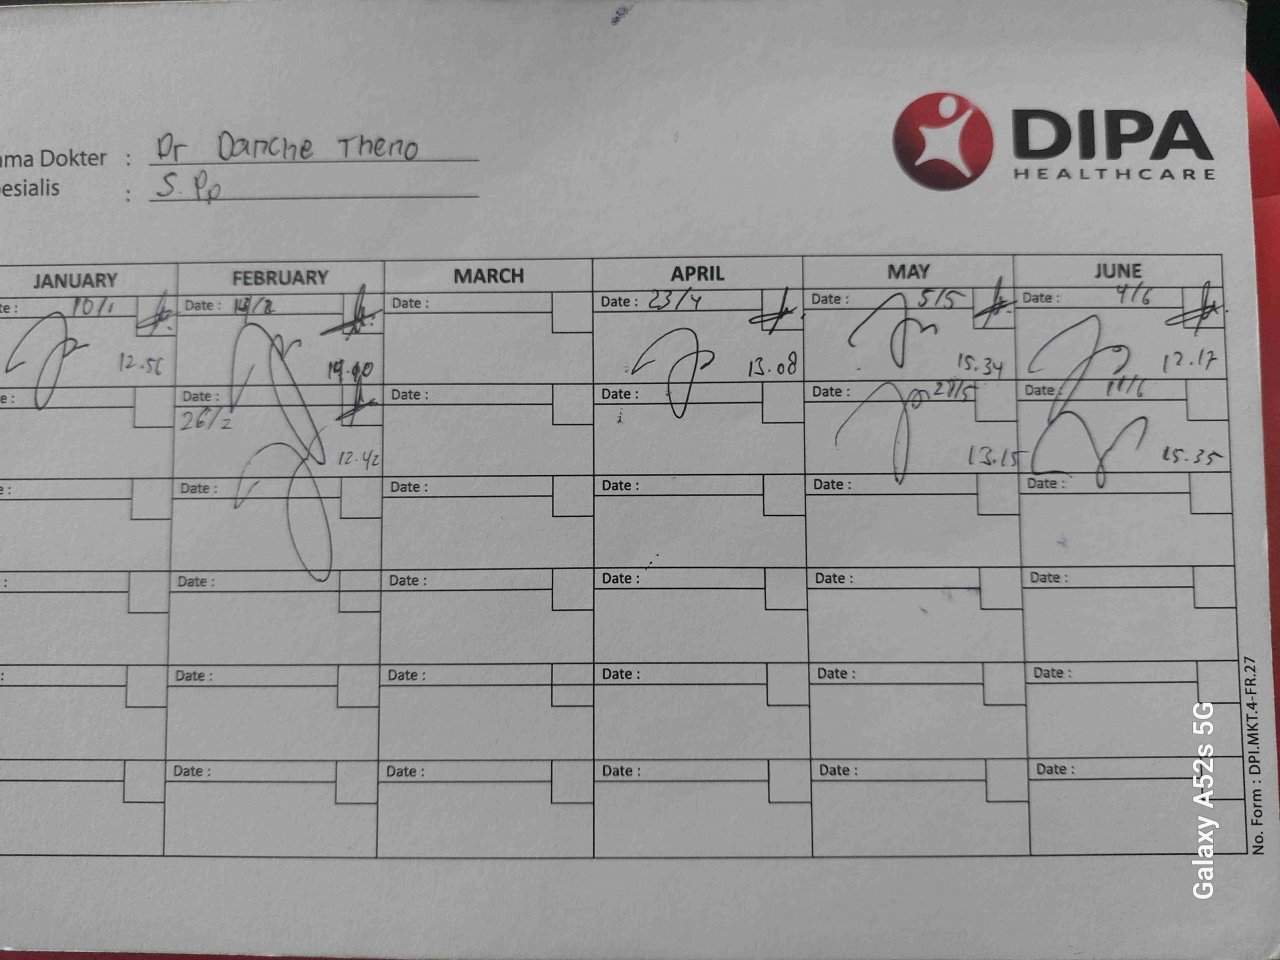 DIPA
HEALTHCARE
ama Dokter : Dr Danche Theno
esialis : S. Pp
JANUARY FEBRUARY MARCH APRIL MAY JUNE
te: 10/1 Date : Date : Date : 23/4 Date : 5/5 Date : 4/6
12.56 13.08 15.34 12.17
e: Date : Date : Date : Date : Date : 11/6
26/2 12.42 13.15 15.35
e: Date : Date : Date : Date : Date :
: Date : Date : Date : Date : Date :
: Date : Date : Date : Date : Date :
Date : Date : Date : Date : Date :
No. Form : DPI.MKT.4-FR.27
Galaxy A52s 5G